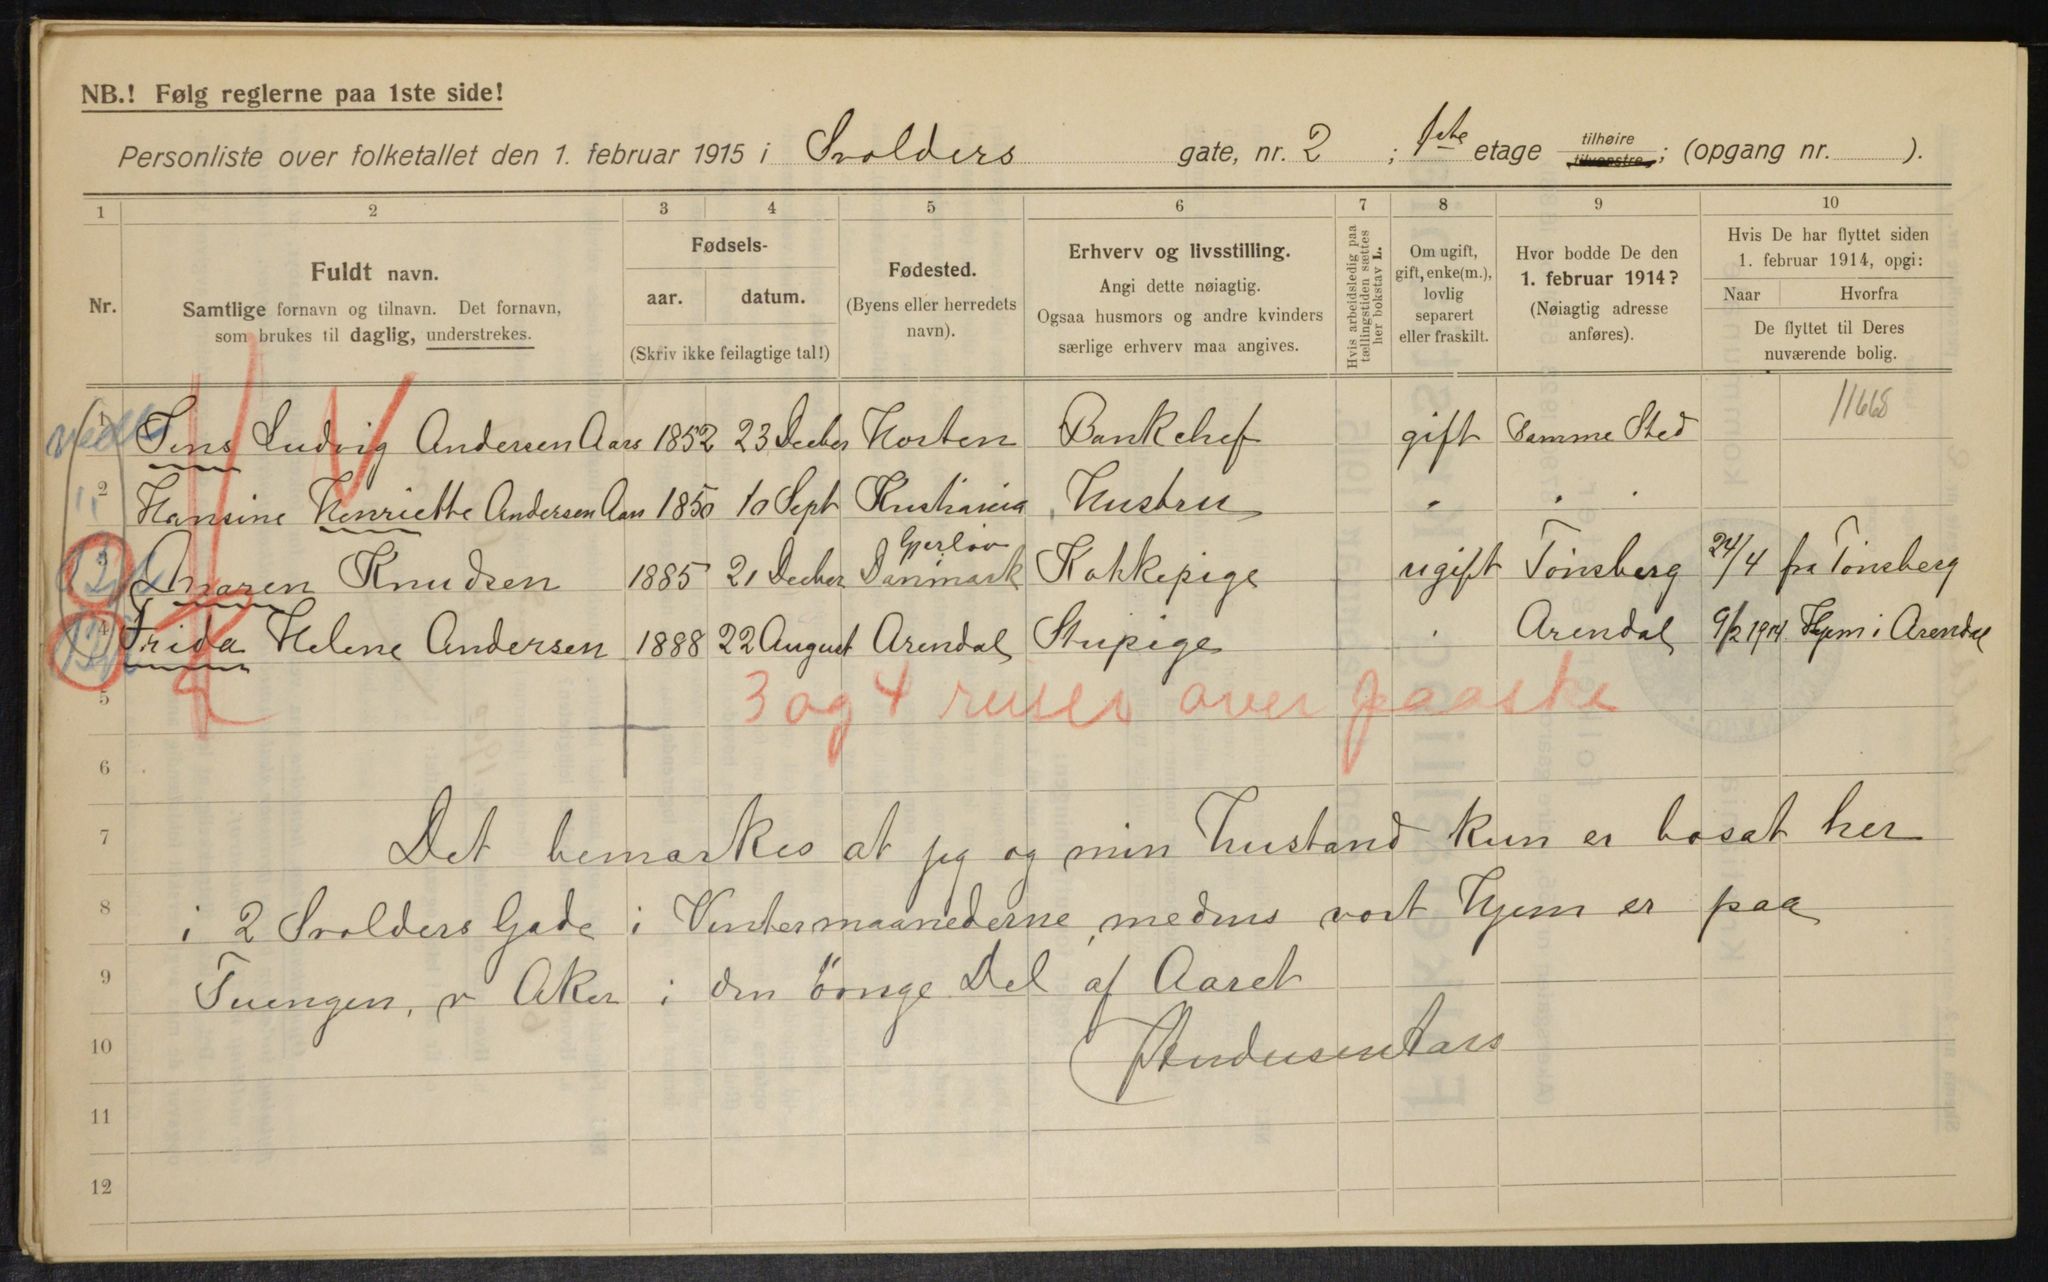 NB.! Følg reglerne paa 1ste side!
Personliste over folketallet den 1. februar 1915 i Svolders gate, nr. 2 ; 1ste etage tilhøire tilvenstre; (opgang nr. ).
1 2 3 4 5 6 7 8 9 10
Nr.
Fuldt navn.
Samtlige fornavn og tilnavn. Det fornavn,
som brukes til daglig, understrekes.
Fødsels-
aar. datum.
(Skriv ikke feilagtige tal!)
Fødested.
(Byens eller herredets
navn).
Erhverv og livsstilling.
Angi dette nøiagtig.
Ogsaa husmors og andre kvinders
særlige erhverv maa angives.
Hvis arbeidsledig paa
tællingstiden sættes
her bokstav L.
Om ugift,
gift, enke(m.),
lovlig
separert
eller fraskilt.
Hvor bodde De den
1. februar 1914?
(Nøiagtig adresse
anføres).
Hvis De har flyttet siden
1. februar 1914, opgi:
Naar Hvorfra
De flyttet til Deres
nuværende bolig.
11668
1 Jens Ludvig Andersen Aars 1852 23 Decber Horten Bankchef gift Samme Sted
2 Hansine Henriette Andersen Aars 1850 10 Sept Kristiania Hustru " " "
3 Maren Knudsen 1885 21 Decber Gjerlöv Danmark Kokkepige ugift Tönsberg 24/4 fra Tönsberg
4 Frida Helene Andersen 1888 22 August Arendal Stupige " Arendal 9/2 1914 Hjem i Arendal
5 3 og 4 reiser over paaske
6
7 Det bemærkes at jeg og min Hustand kun er bosat her
8 i 2 Svolders Gade i Vintermaanederne, medens vort Hjem er paa
9 Tuengen, v Aker i den övrige Del af Aaret
10 J Andersen Aars
11
12